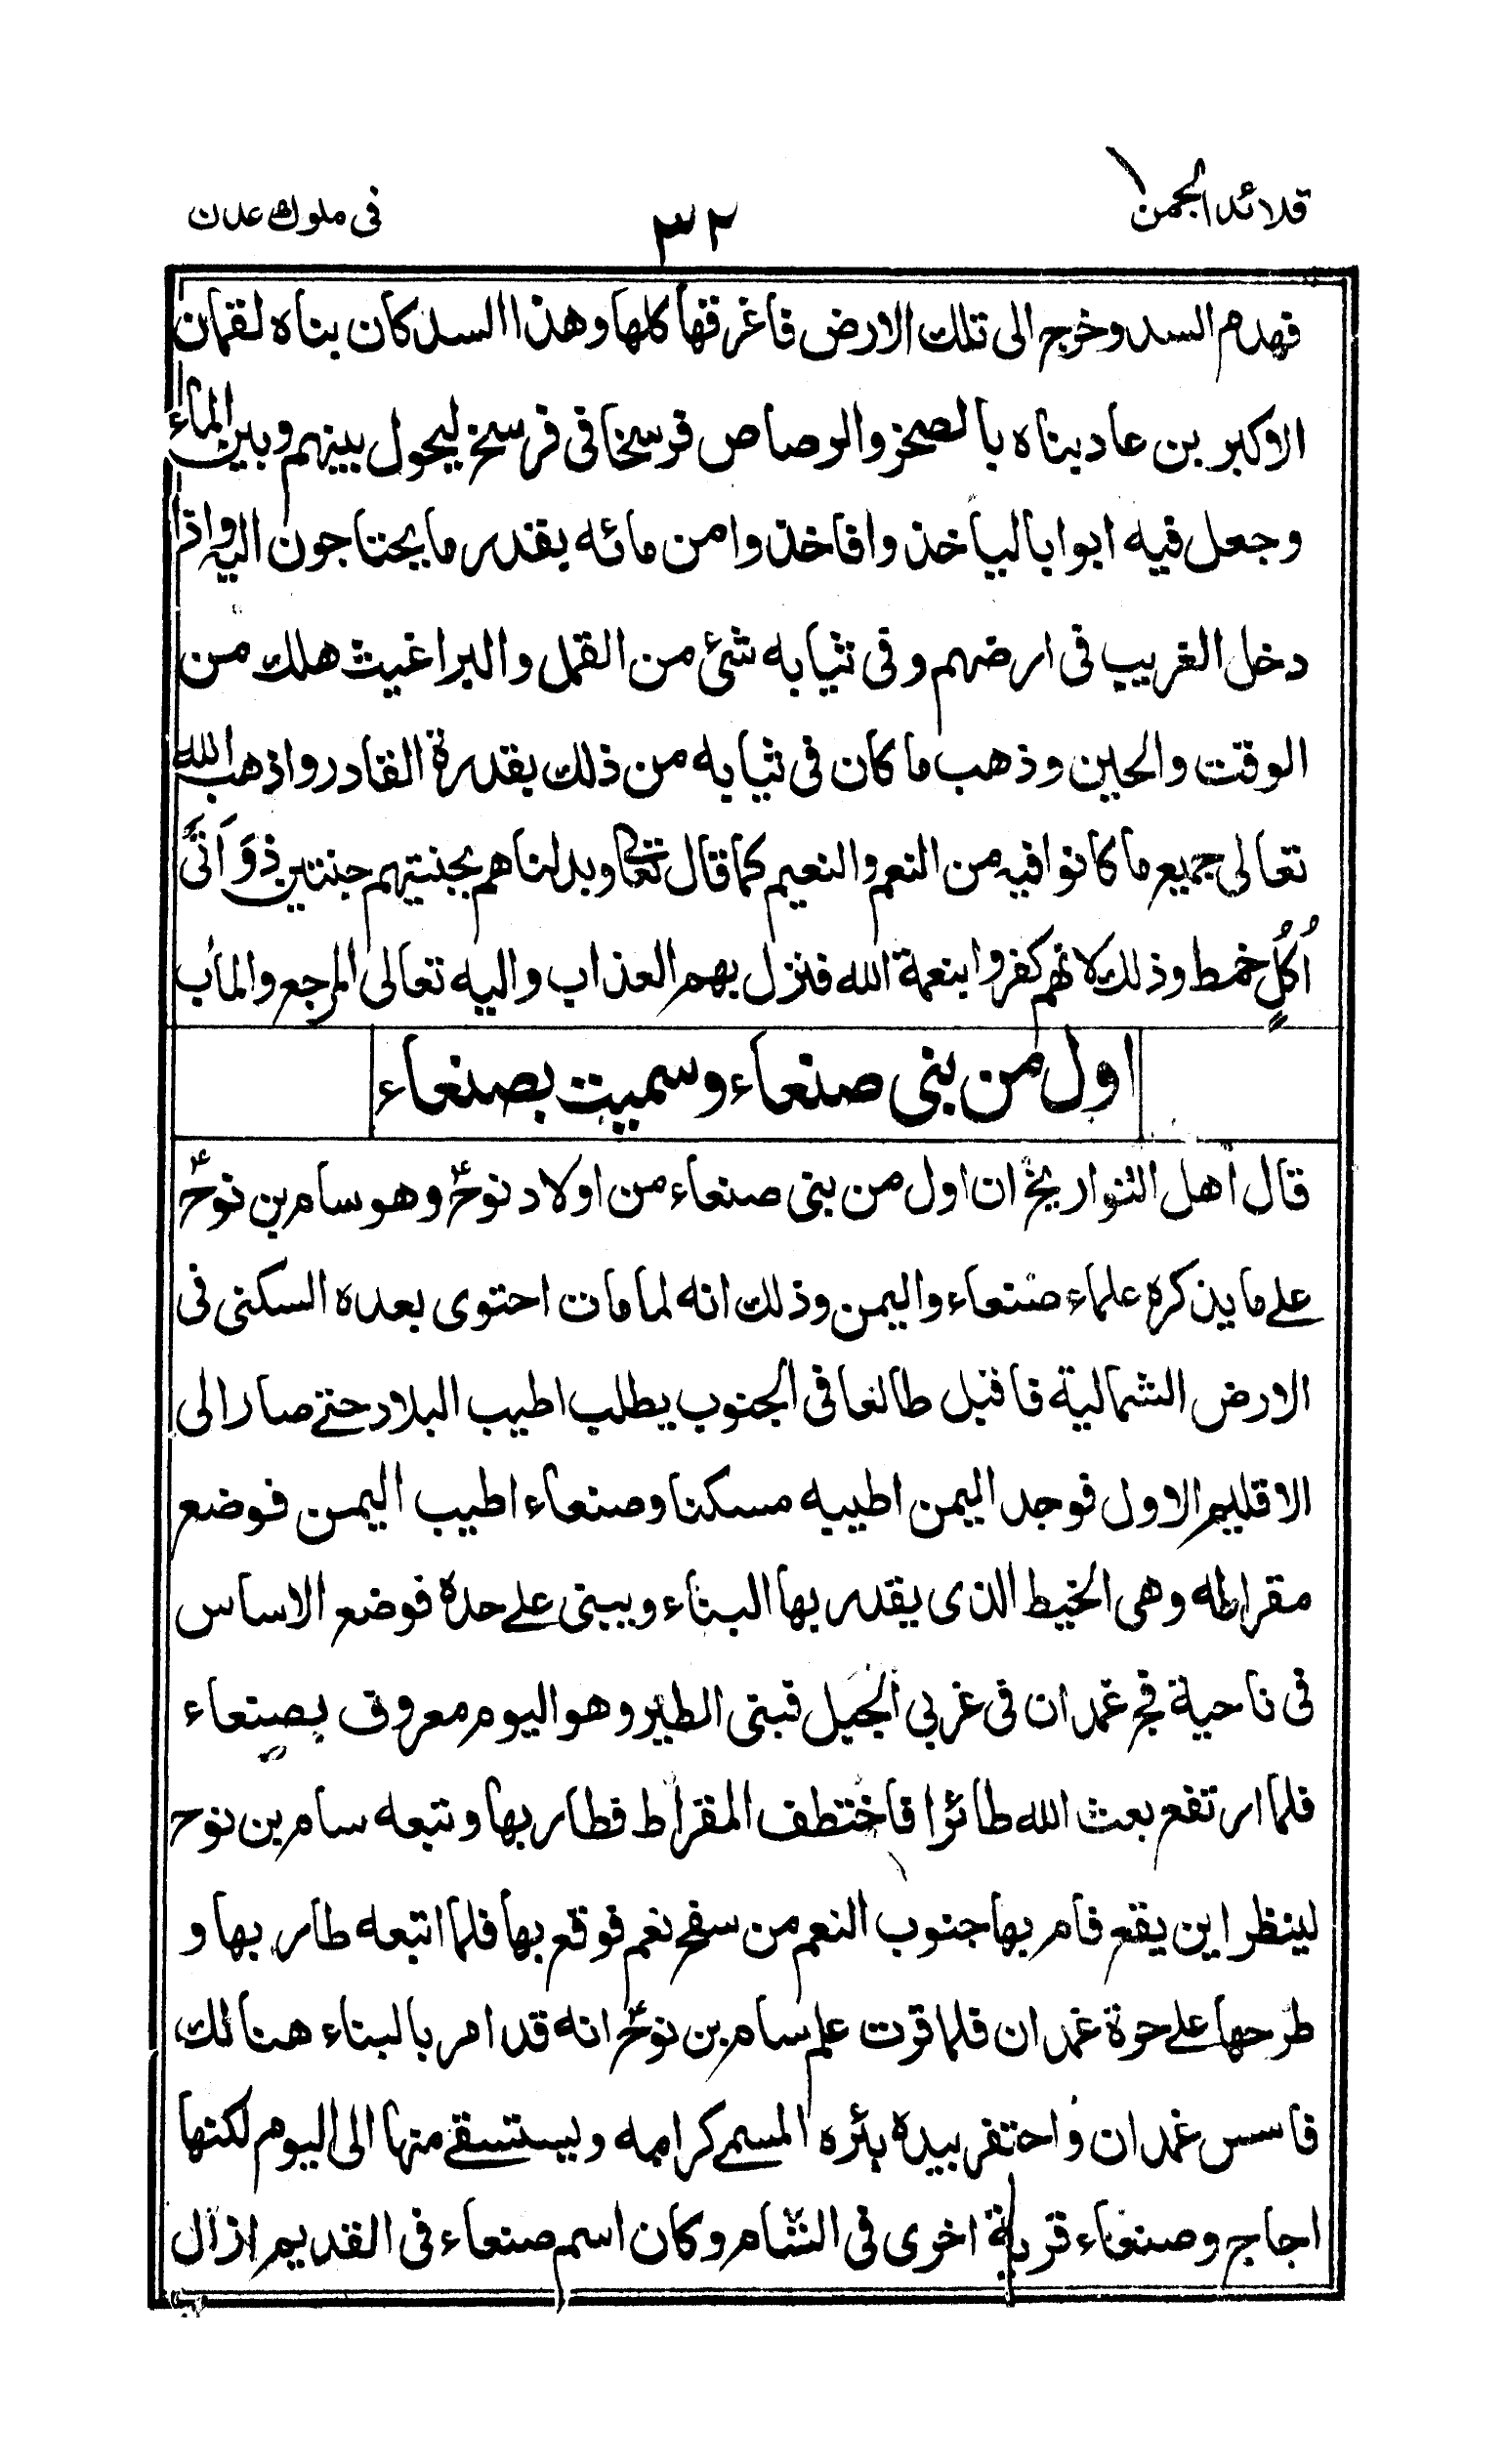 قلائد الجمن
٣٢
فى ملوك عدن
فهدم السد وخرج الى تلك الارض فاغرقها كلها وهذا السد كان بناه لقمان
الاكبر بن عاد بناه بالصخر والرصاص فرسخا فى فرسخ ليحول بينهم وبين الماء
وجعل فيه ابوابا لياخذ وافاخذ وامن مائه بقدر ما يحتاجون اليه واذا
دخل الغريب فى ارضهم وفى ثيابه شئ من القمل والبراغيث هلك من
الوقت والحين وذهب ما كان فى ثيابه من ذلك بقدرة القادر واذهب الله
تعالى جميع ما كانوا فيه من النعم والنعيم كما قال تعا وبدلناهم بجنتيهم جنتين ذَوَاتَىْ
اُكُلٍ خمط وذلك لانهم كفروا بنعمة الله فنزل بهم العذاب واليه تعالى المرجع والمآب
اول من بنى صنعاء وسميت بصنعاء
قال اهل التواريخ ان اول من بنى صنعاء من اولاد نوحؑ وهو سام بن نوحؑ
على ما يذكره علماء صنعاء واليمن وذلك انه لما مات احتوى بعده السكنى فى
الارض الشمالية فاقبل طالعا فى الجنوب يطلب اطيب البلاد حتى صار الى
الاقليم الاول فوجد اليمن اطيبه مسكنا وصنعاء اطيب اليمن فوضع
مقراطه وهى الخيط الذى يقدر بها البناء ويبنى على حدة فوضع الاساس
فى ناحية فج غمدان فى غربى الجبل فبنى الطير وهو اليوم معروف بصنعاء
فلما ارتفع بعث الله طائرا فاختطف المقراط فطار بها وتبعه سام بن نوح
لينظر اين يقع فام بها جنوب النعم من سفح نغم فوقع بها فلما اتبعه طار بها و
طرحها على حوة غمدان فلما قرت علم سام بن نوحؑ انه قد امر بالبناء هنالك
فاسس غمدان واحتفر بيده بئره المسمى كرامه ويستسقى منها الى اليوم لكنها
اجاج وصنعاء قرية اخرى فى الشام وكان اسم صنعاء فى القديم ازال